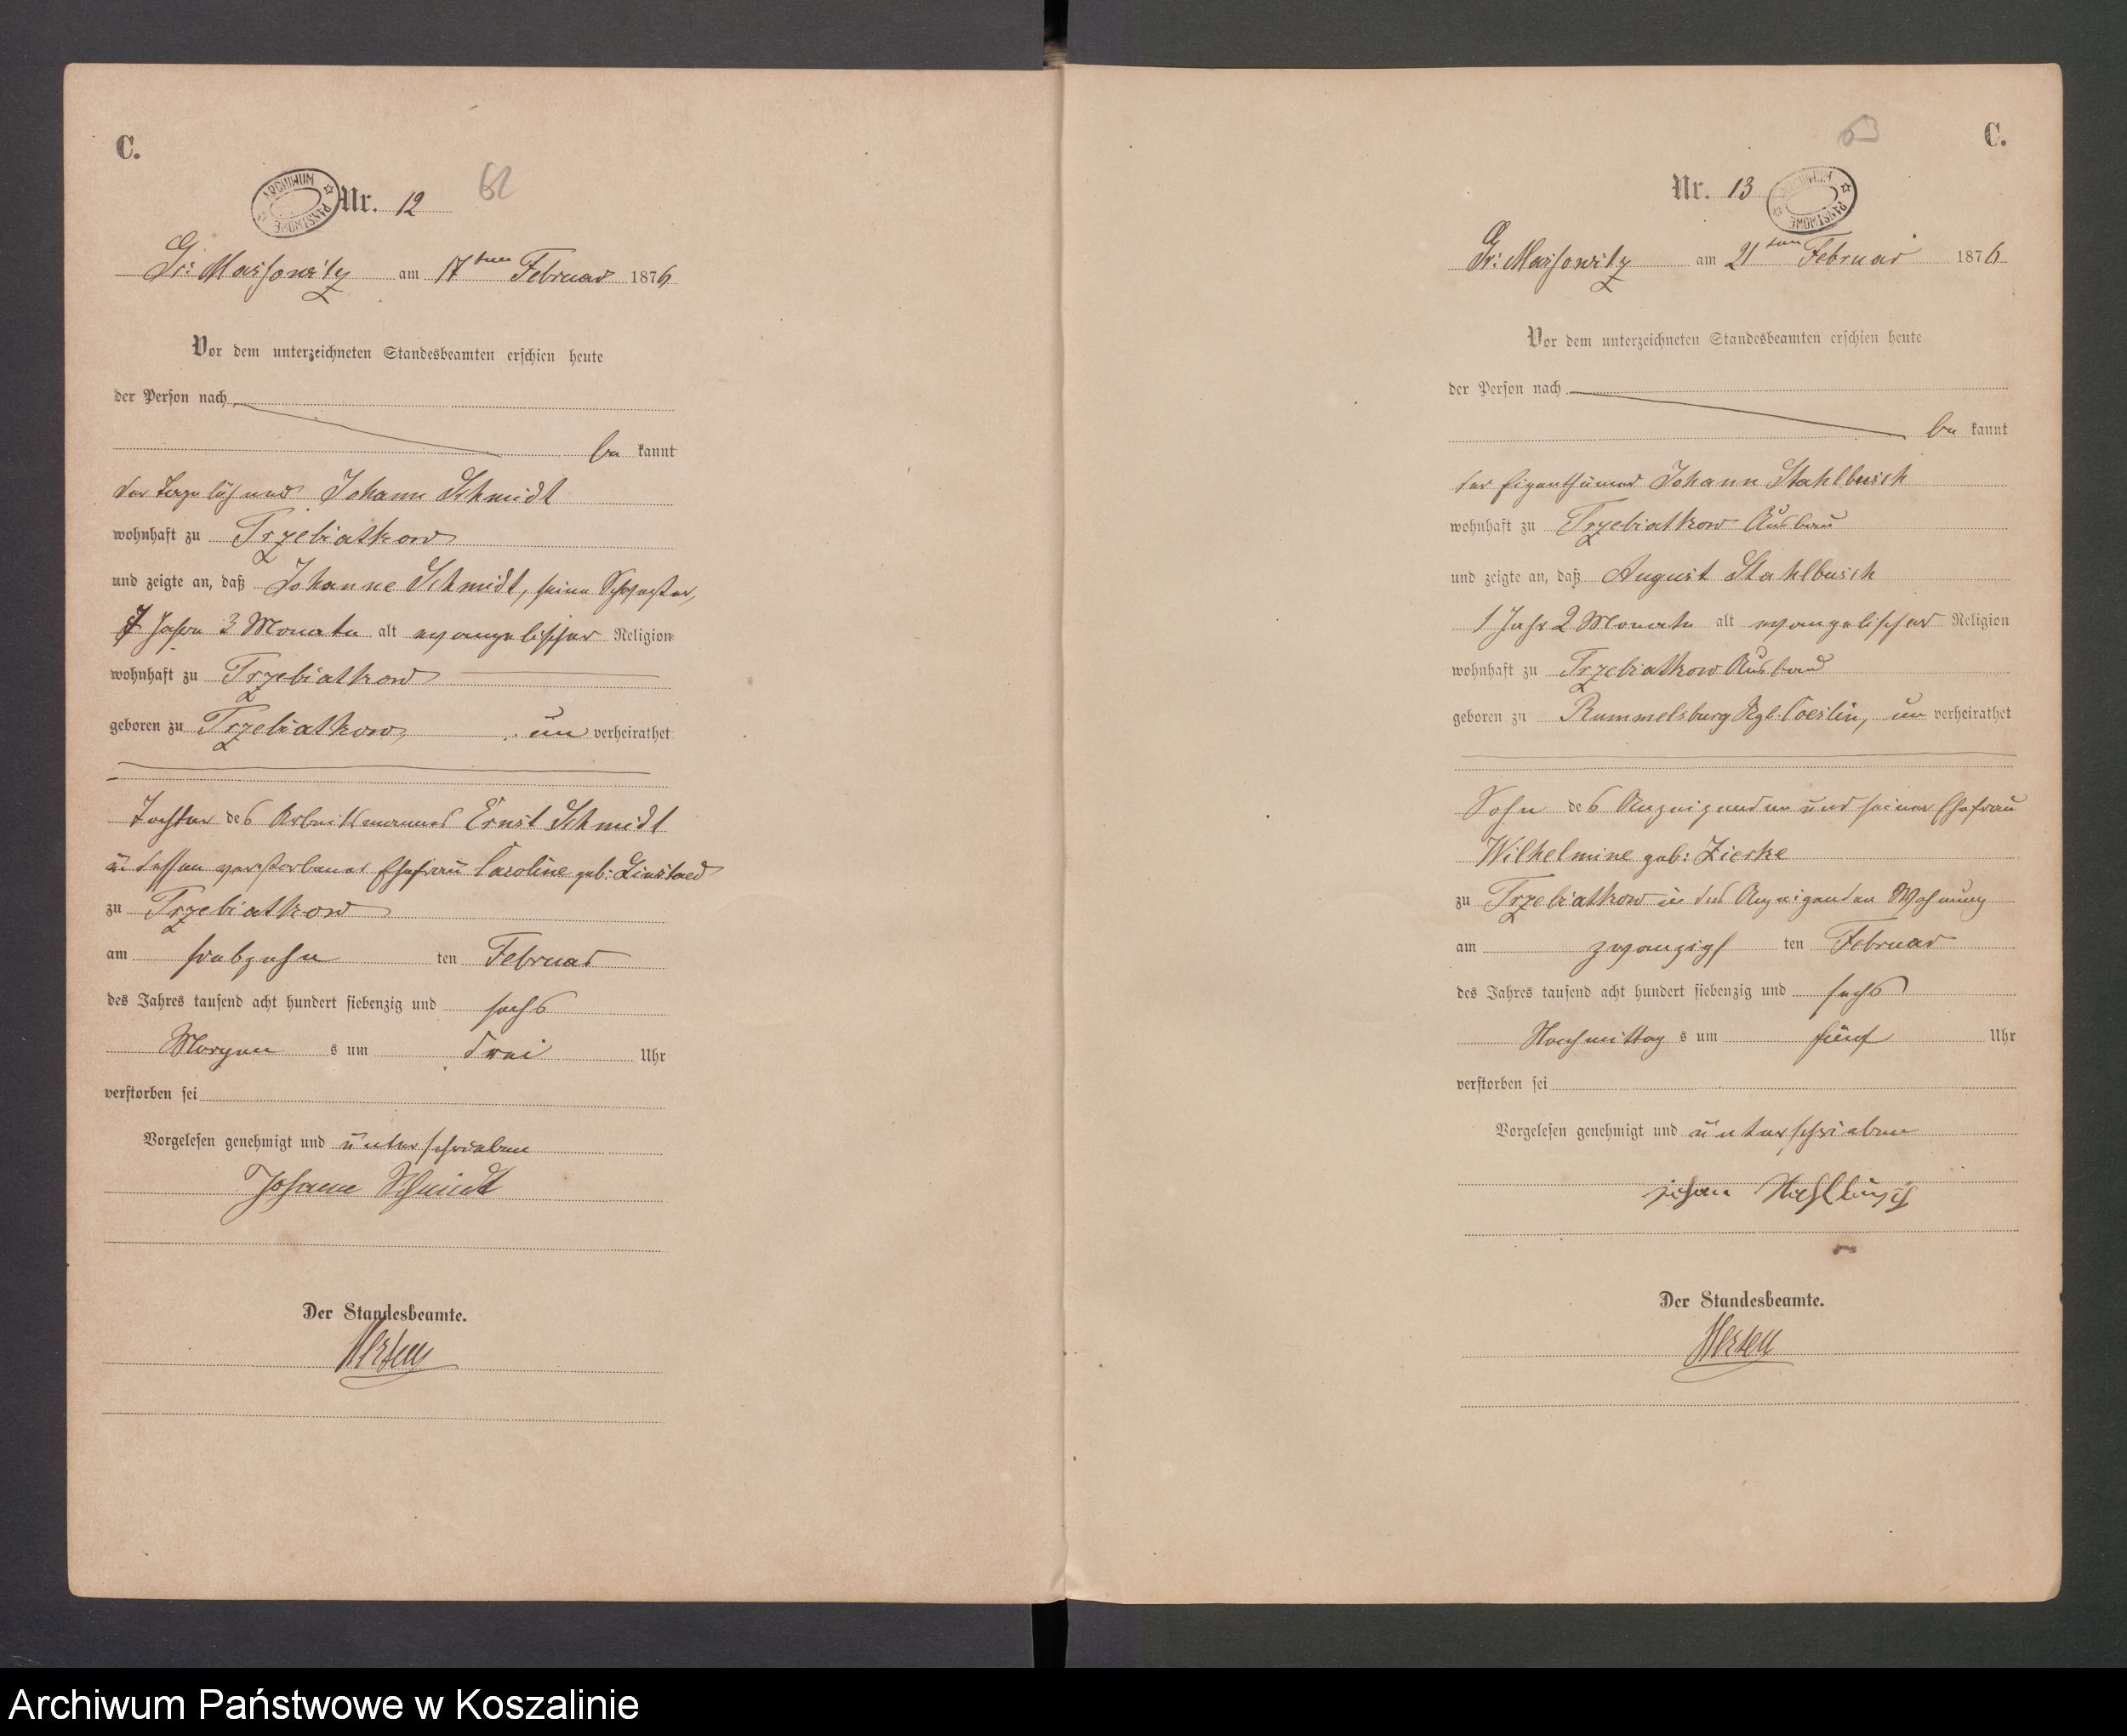 C.
62
ARCHIWUM PAŃSTWOWE
Nr. 12
Gr: Massowitz am 17ten Februar 1876
Vor dem unterzeichneten Standesbeamten erschien heute
der Person nach
be kannt
der Tagelöhner Johann Schmidt
wohnhaft zu Trzebiatkow
und zeigte an, daß Johanne Schmidt, seine Schwester,
7 Jahre 3 Monate alt evangelischer Religion
wohnhaft zu Trzebiatkow
geboren zu Trzebiatkow, un verheirathet
Tochter des Arbeitsmannes Ernst Schmidt
u: dessen verstorbenen Ehefrau Caroline geb:
zu Trzebiatkow
am siebzehn ten Februar
des Jahres tausend acht hundert siebenzig und sechs
Morgen s um drei Uhr
verstorben sei
Vorgelesen genehmigt und unterschrieben
Johann Schmidt
Der Standesbeamte.
C.
63
Nr. 13
ARCHIWUM PAŃSTWOWE
Gr: Massowitz am 21ten Februar 1876
Vor dem unterzeichneten Standesbeamten erschien heute
der Person nach
be kannt
der Eigenthümer Johann Stahlbusch
wohnhaft zu Trzebiatkow Ausbau
und zeigte an, daß August Stahlbusch
1 Jahr 2 Monate alt evangelischer Religion
wohnhaft zu Trzebiatkow Ausbau
geboren zu Rummelsburg Rgb. Coeslin, un verheirathet
Sohn des Anzeigenden und seiner Ehefrau
Wilhelmine geb: Zierke
zu Trzebiatkow in des Anzeigenden Wohnung
am zwanzigs ten Februar
des Jahres tausend acht hundert siebenzig und sechs
Nachmittag s um fünf Uhr
verstorben sei
Vorgelesen genehmigt und unterschrieben
Johan Stahlbusch
Der Standesbeamte.
Archiwum Państwowe w Koszalinie